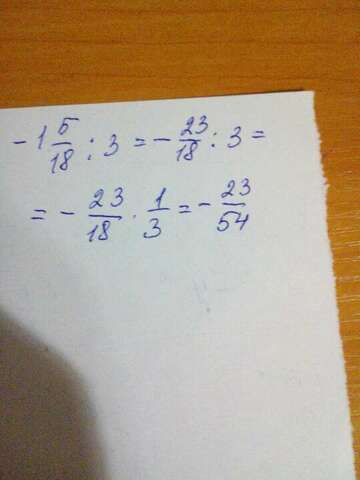 -1 5/18 : 3 = - 23/18 : 3 =
= - 23/18 · 1/3 = - 23/54